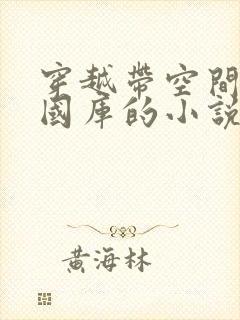 穿越帶空間
國庫的小說
黃海林